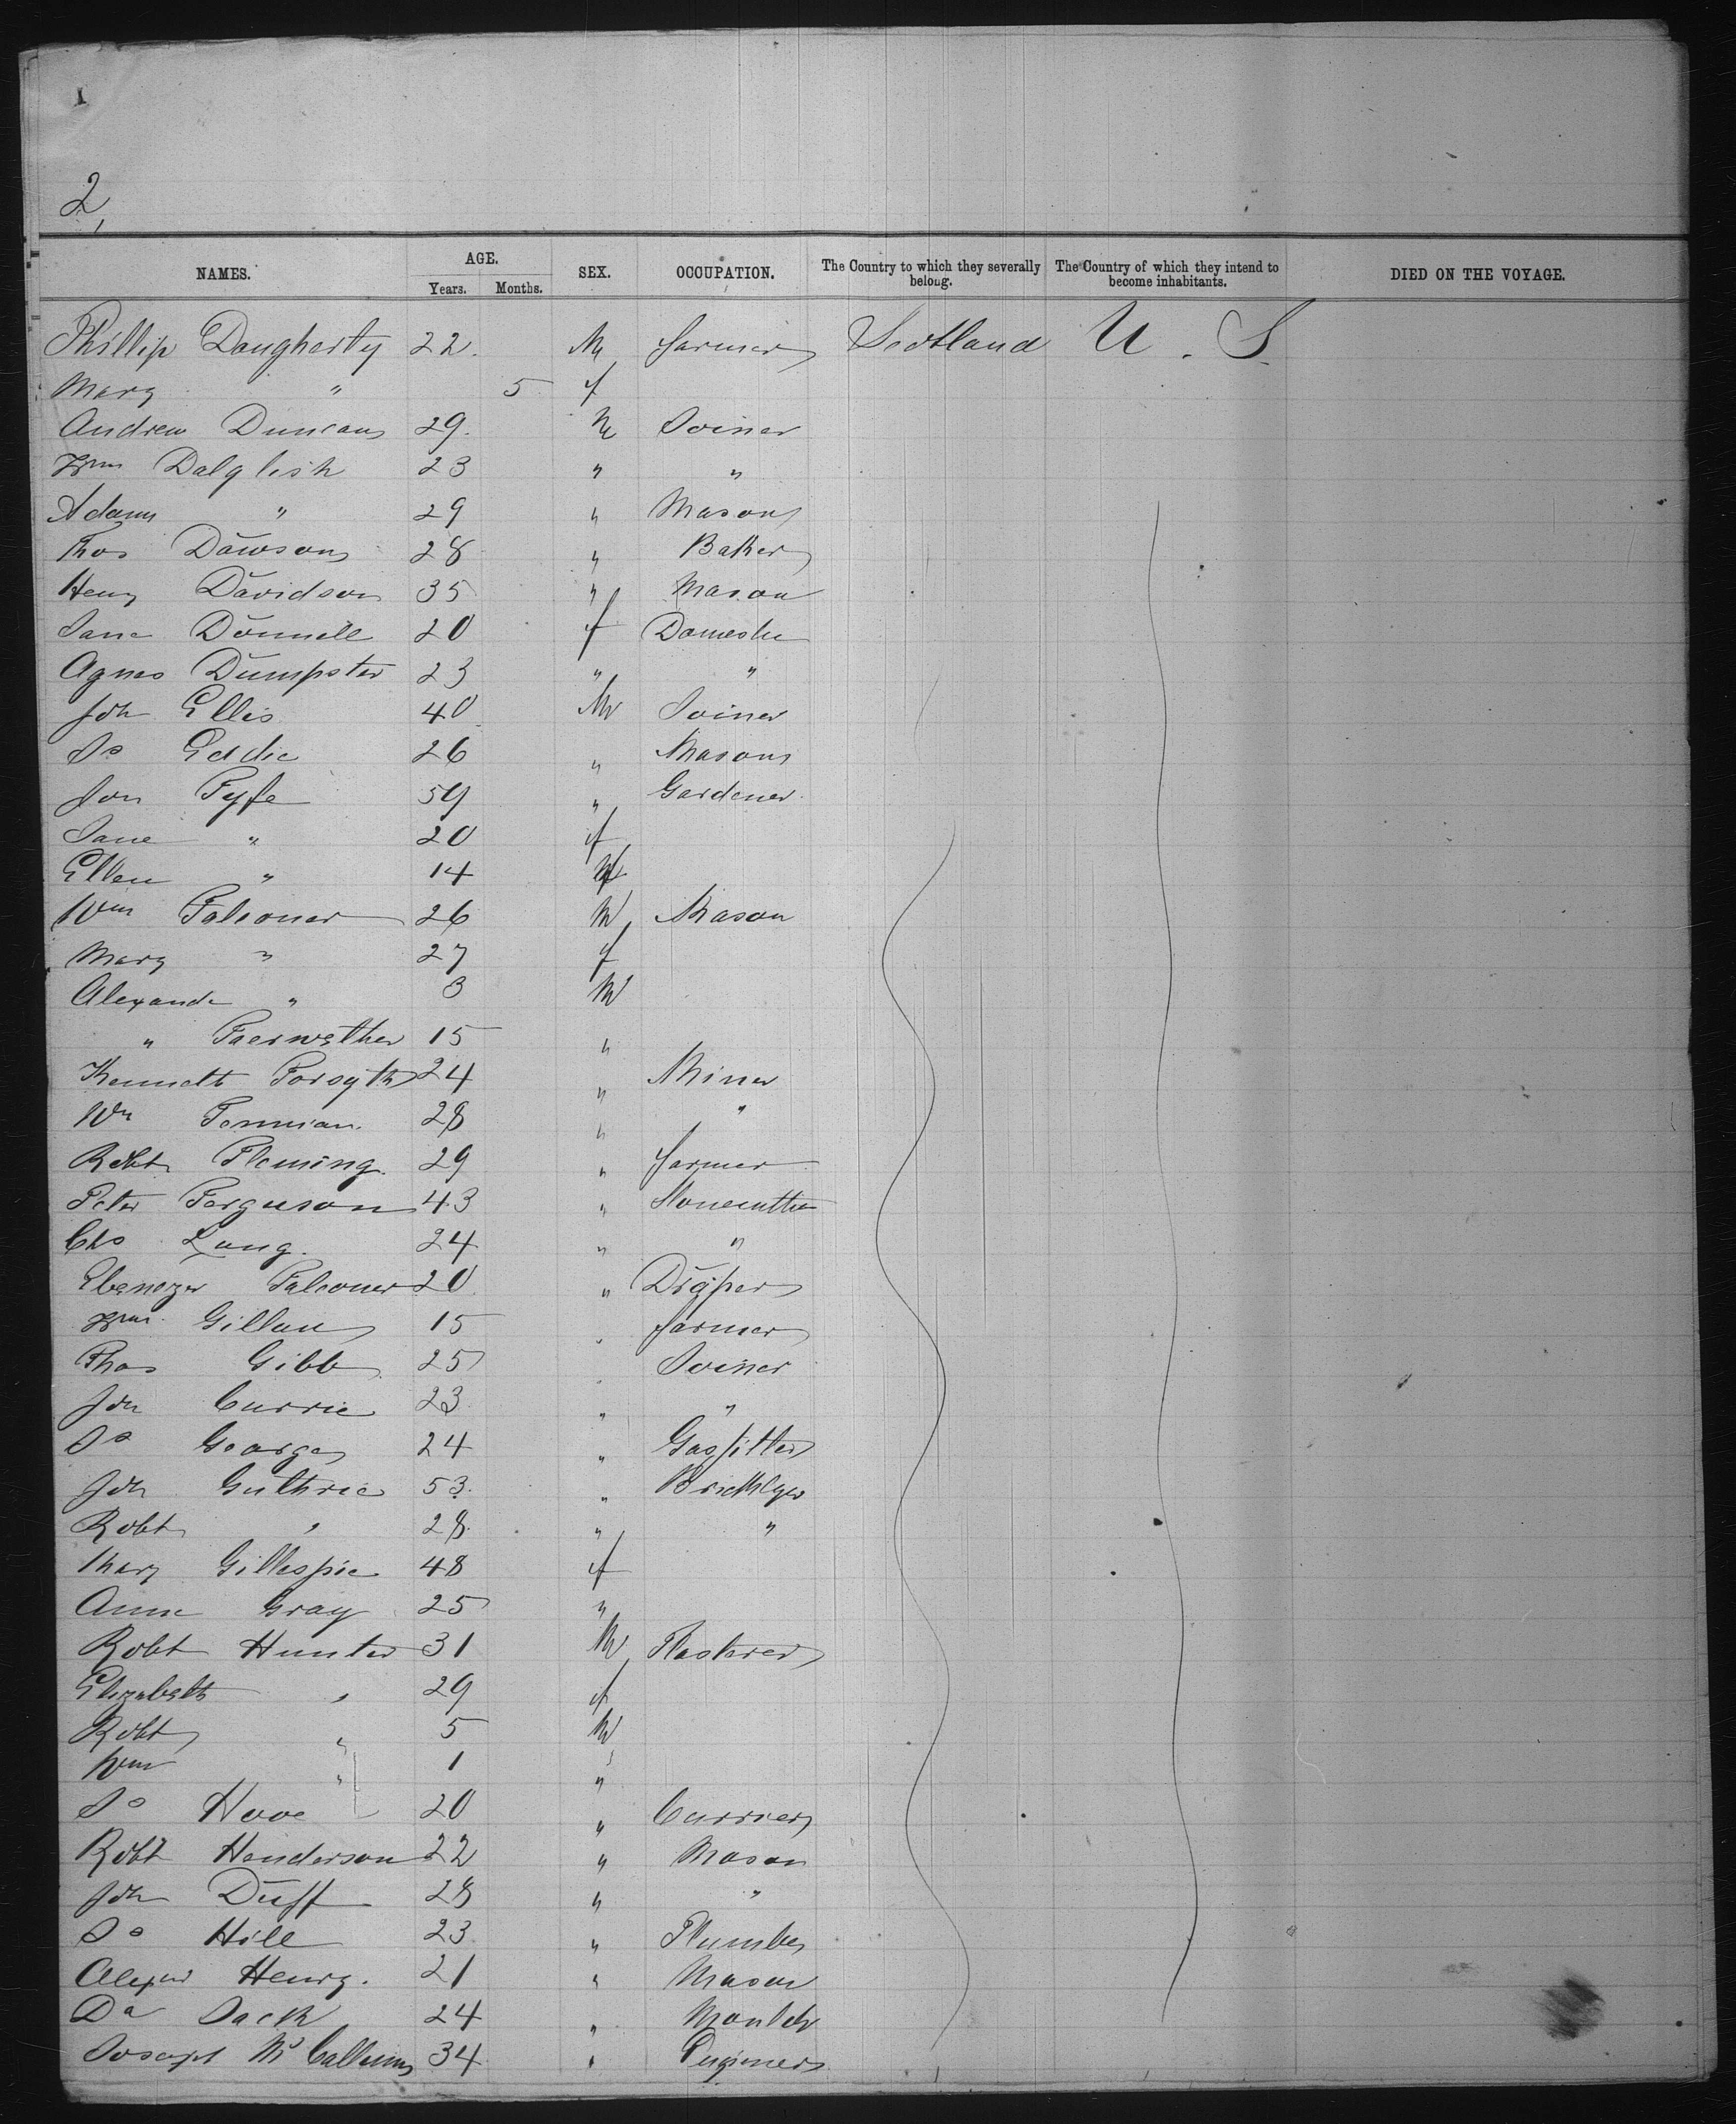 1
2,
NAMES. AGE. Years. Months. SEX. OCCUPATION. The Country to which they severally belong. The Country of which they intend to become inhabitants. DIED ON THE VOYAGE.
Phillip Daugherty 22. M farmer Scotland U. S
Mary " 5 f
Andrew Duncan 29. M Joiner
Wm Dalglish 23 " "
Adam " 29 " Mason
Thos Dawson 28 " Baker
Henry Davidson 35 " Mason
Jane Donnell 20 f Domestic
Agnes Dumpster 23 " "
Joh Ellis 40 M Joiner
Js Eddie 26 " Mason
Jon Fyfe 59 " Gardener
Jane " 20 f
Ellen " 14 f
Wm Falconer 26 M Mason
Mary " 27 f
Alexande " 3 M
" Faerwether 15 "
Kenneth Forsyth 24 " Miner
Wm 28 " "
Robt Fleming 29 " farmer
Peter Ferguson 43 " Stonecutter
Chs Lang. 24 " "
Ebenezer Falconer 20 " Draper
Wm Gillan 15 " farmer
Thos Gibb 25 " Joiner
Joh Currie 23 " "
Js George 24 " Gasfitter
Joh Guthrie 53. " Bricklyr
Robt " 28. " "
Mary Gillespie 48 f
Anne Gray 25 "
Robt Hunter 31 M Plasterer
Elizabeth " 29 f
Robt " 5 M
Wm " 1 "
Js 20 " Currier
Robt Henderson 22 " Mason
Joh Duff 28 " "
Js Hill 23 " Plumber
Alexnd Henry. 21 " Mason
Da Jack 24 " Moulder
Joseph McCallum 34 " Engineer